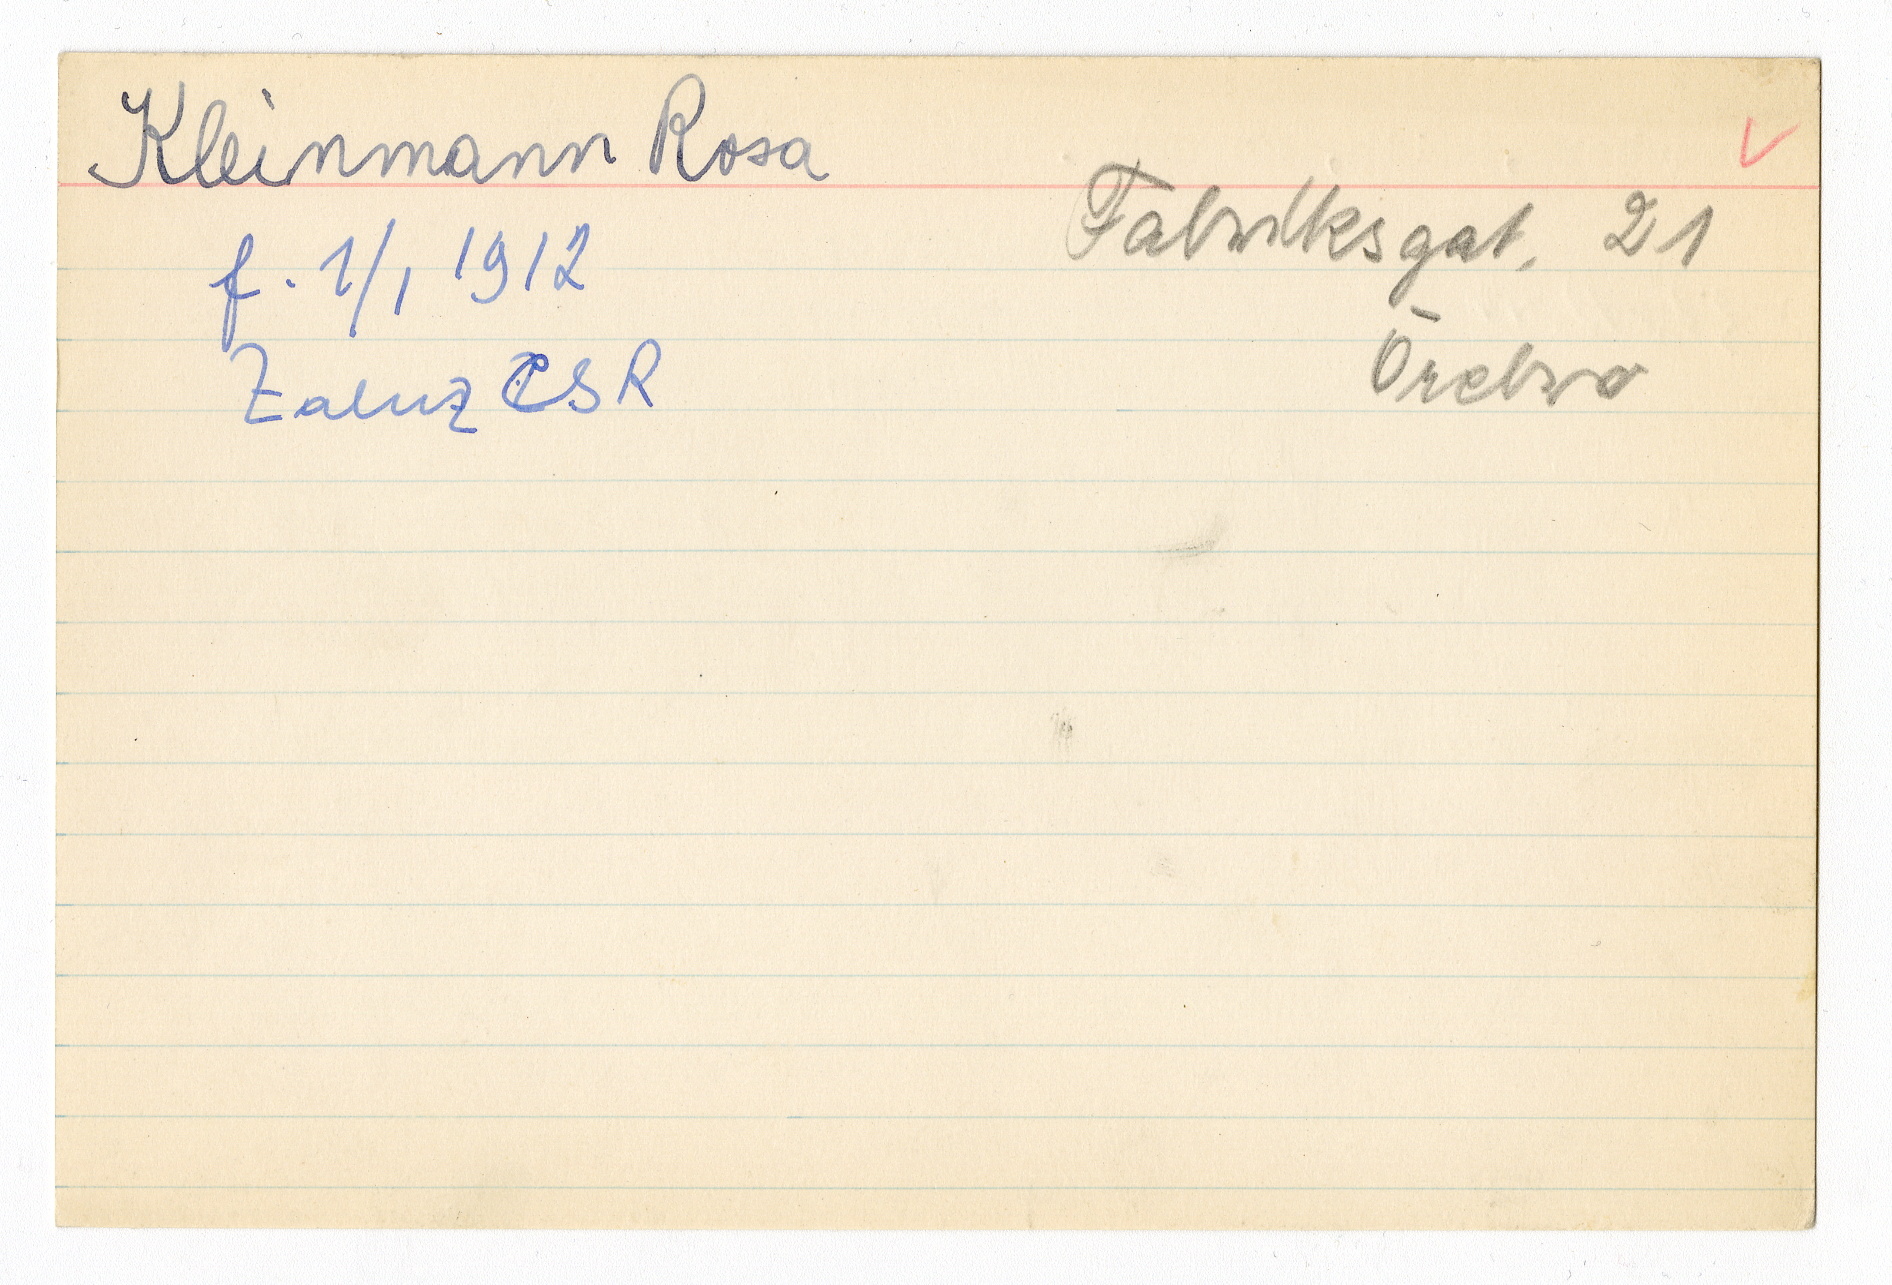 Kleinmann Rosa
Fabriksgat. 21
f. 1/1 1912
Örebro
Zaluz ČSR